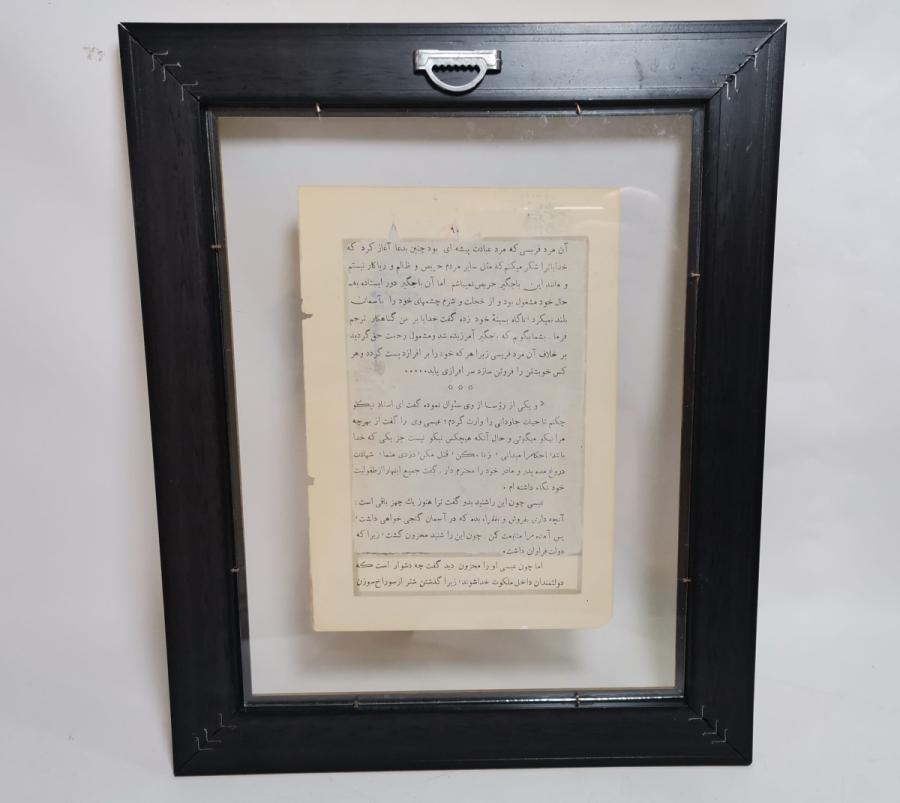 ۹۰
آن مرد فریسی که مرد عبادت پیشه ای بود چنین بدعا آغاز کرد که
خدایا ترا شکر میکنم که مثل سایر مردم حریص و ظالم و ریاکار نیستم
و مانند این باجگیر حریص نمیباشم اما آن باجگیر دور ایستاده به
حال خود مشغول بود و از خجلت و شرم چشمهای خود را بآسمان
بلند نمیکرد ناگاه بسینهٔ خود زده گفت خدایا بر من گناهکار ترحم
فرما . بشما بگویم که باجگیر آمرزیده شد و مشمول رحمت حق گردید
بر خلاف آن مرد فریسی زیرا هر که خود را بر افرازد پست گردد و هر
کس خویشتن را فروتن سازد سر افرازی یابد.....
○ ○ ○
« و یکی از رؤسا از وی سئوال نموده گفت ای استاد نیکو
چکنم تا حیات جاودانی را وارث گردم ؛ عیسی وی را گفت از بهرچه
مرا نیکو میگوئی و حال آنکه هیچکس نیکو نیست جز یکی که خدا
باشد؛ احکام را میدانی ؛ زنا مکن؛ قتل مکن؛ دزدی منما؛ شهادت
دروغ مده پدر و مادر خود را محترم دار. گفت جمیع اینها را از طفولیت
خود نگاه داشته ام .
عیسی چون این را شنید بدو گفت ترا هنوز یك چیز باقی است :
آنچه داری بفروش و بفقراء بده که در آسمان گنجی خواهی داشت؛
پس آمده مرا متابعت کن . چون این را شنید محزون گشت؛ زیرا که
دولت فراوان داشت.
اما چون عیسی او را محزون دید گفت چه دشوار است که
دولتمندان داخل ملکوت خدا شوند؛ زیرا گذشتن شتر از سوراخ سوزن